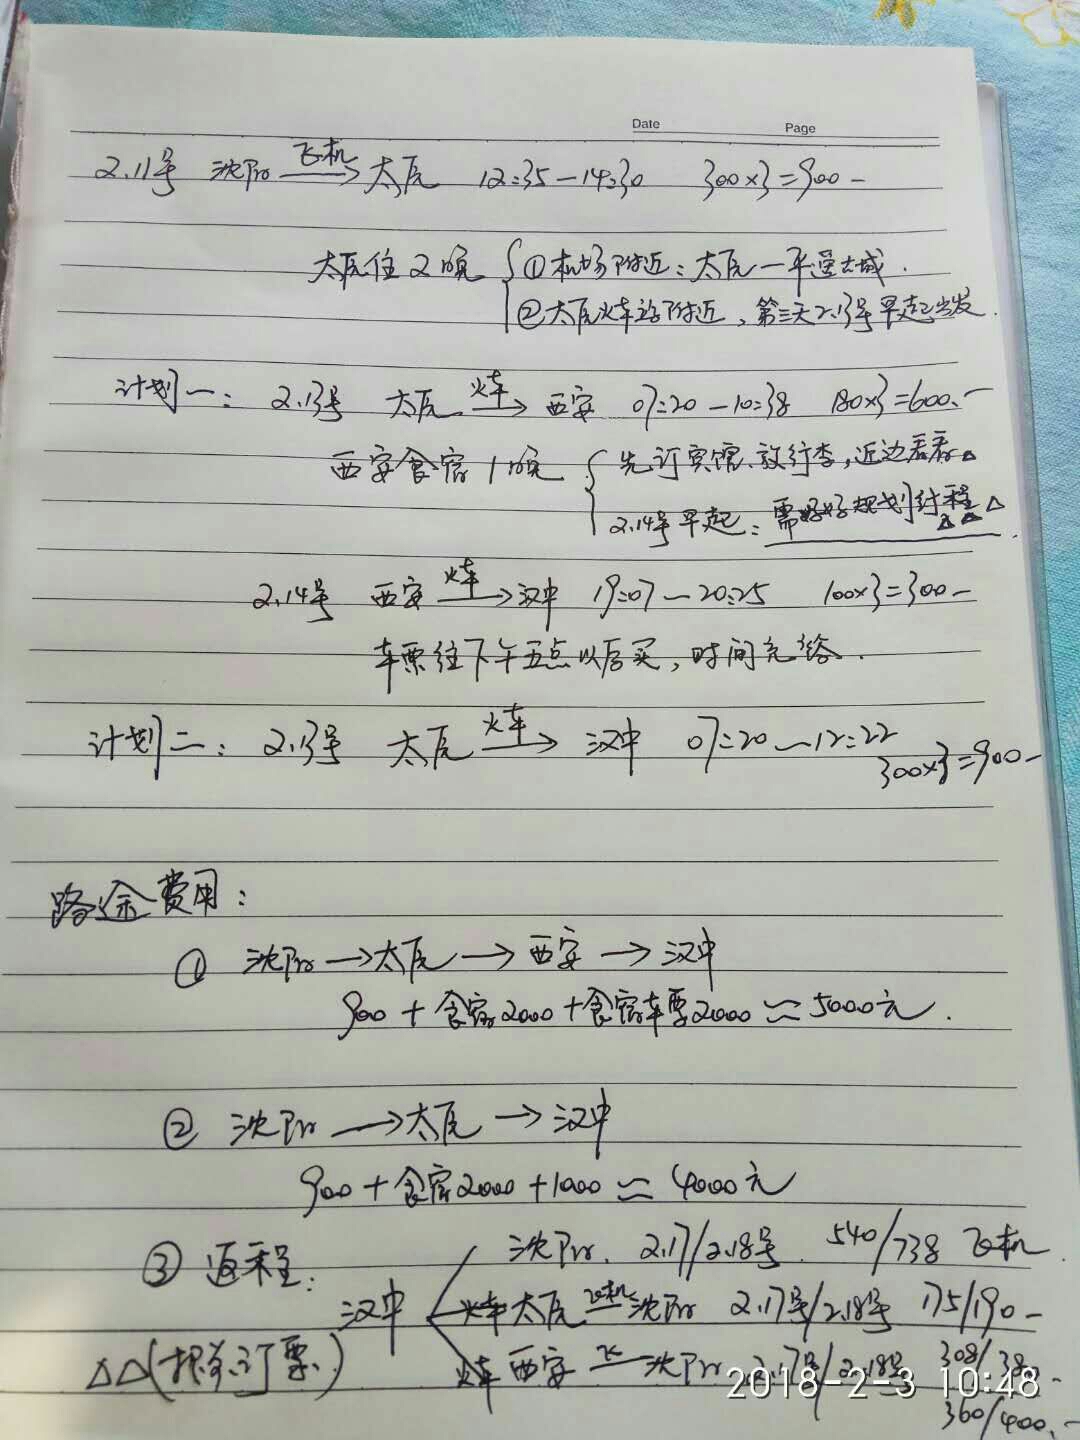 Date Page
2.11号 沈阳 飞机→ 太原 12:35-14:30 300×3=900-
太原住2晚 ①机场附近:太原-平遥古城.
②太原火车站附近,第三天2.13号早起出发.
计划一: 2.13号 太原 火车→ 西安 07:20-10:38 180×3=600.-
西安食宿1晚 先订宾馆、放行李,近边看看△
2.14号早起:需好好规划行程△△△.
2.14号 西安 火车→ 汉中 19:07-20:25 100×3=300-
车票往下午五点以后买,时间充裕.
计划二: 2.13号 太原 火车→ 汉中 07:20-12:22
300×3=900-
路途费用:
① 沈阳→太原→西安→汉中
900+食宿2000+食宿车票2000≈5000元.
② 沈阳→太原→汉中
900+食宿2000+1000≈4000元
③返程: 沈阳. 2.17/2.18号. 540/738 飞机
汉中 火车 太原 飞机 沈阳 2.17号/2.18号 175/190-
△△(提前订票.) 火车 西安 飞 沈阳 2.17号/2.18号 308/380-
360/400.-
2018-2-3 10:48